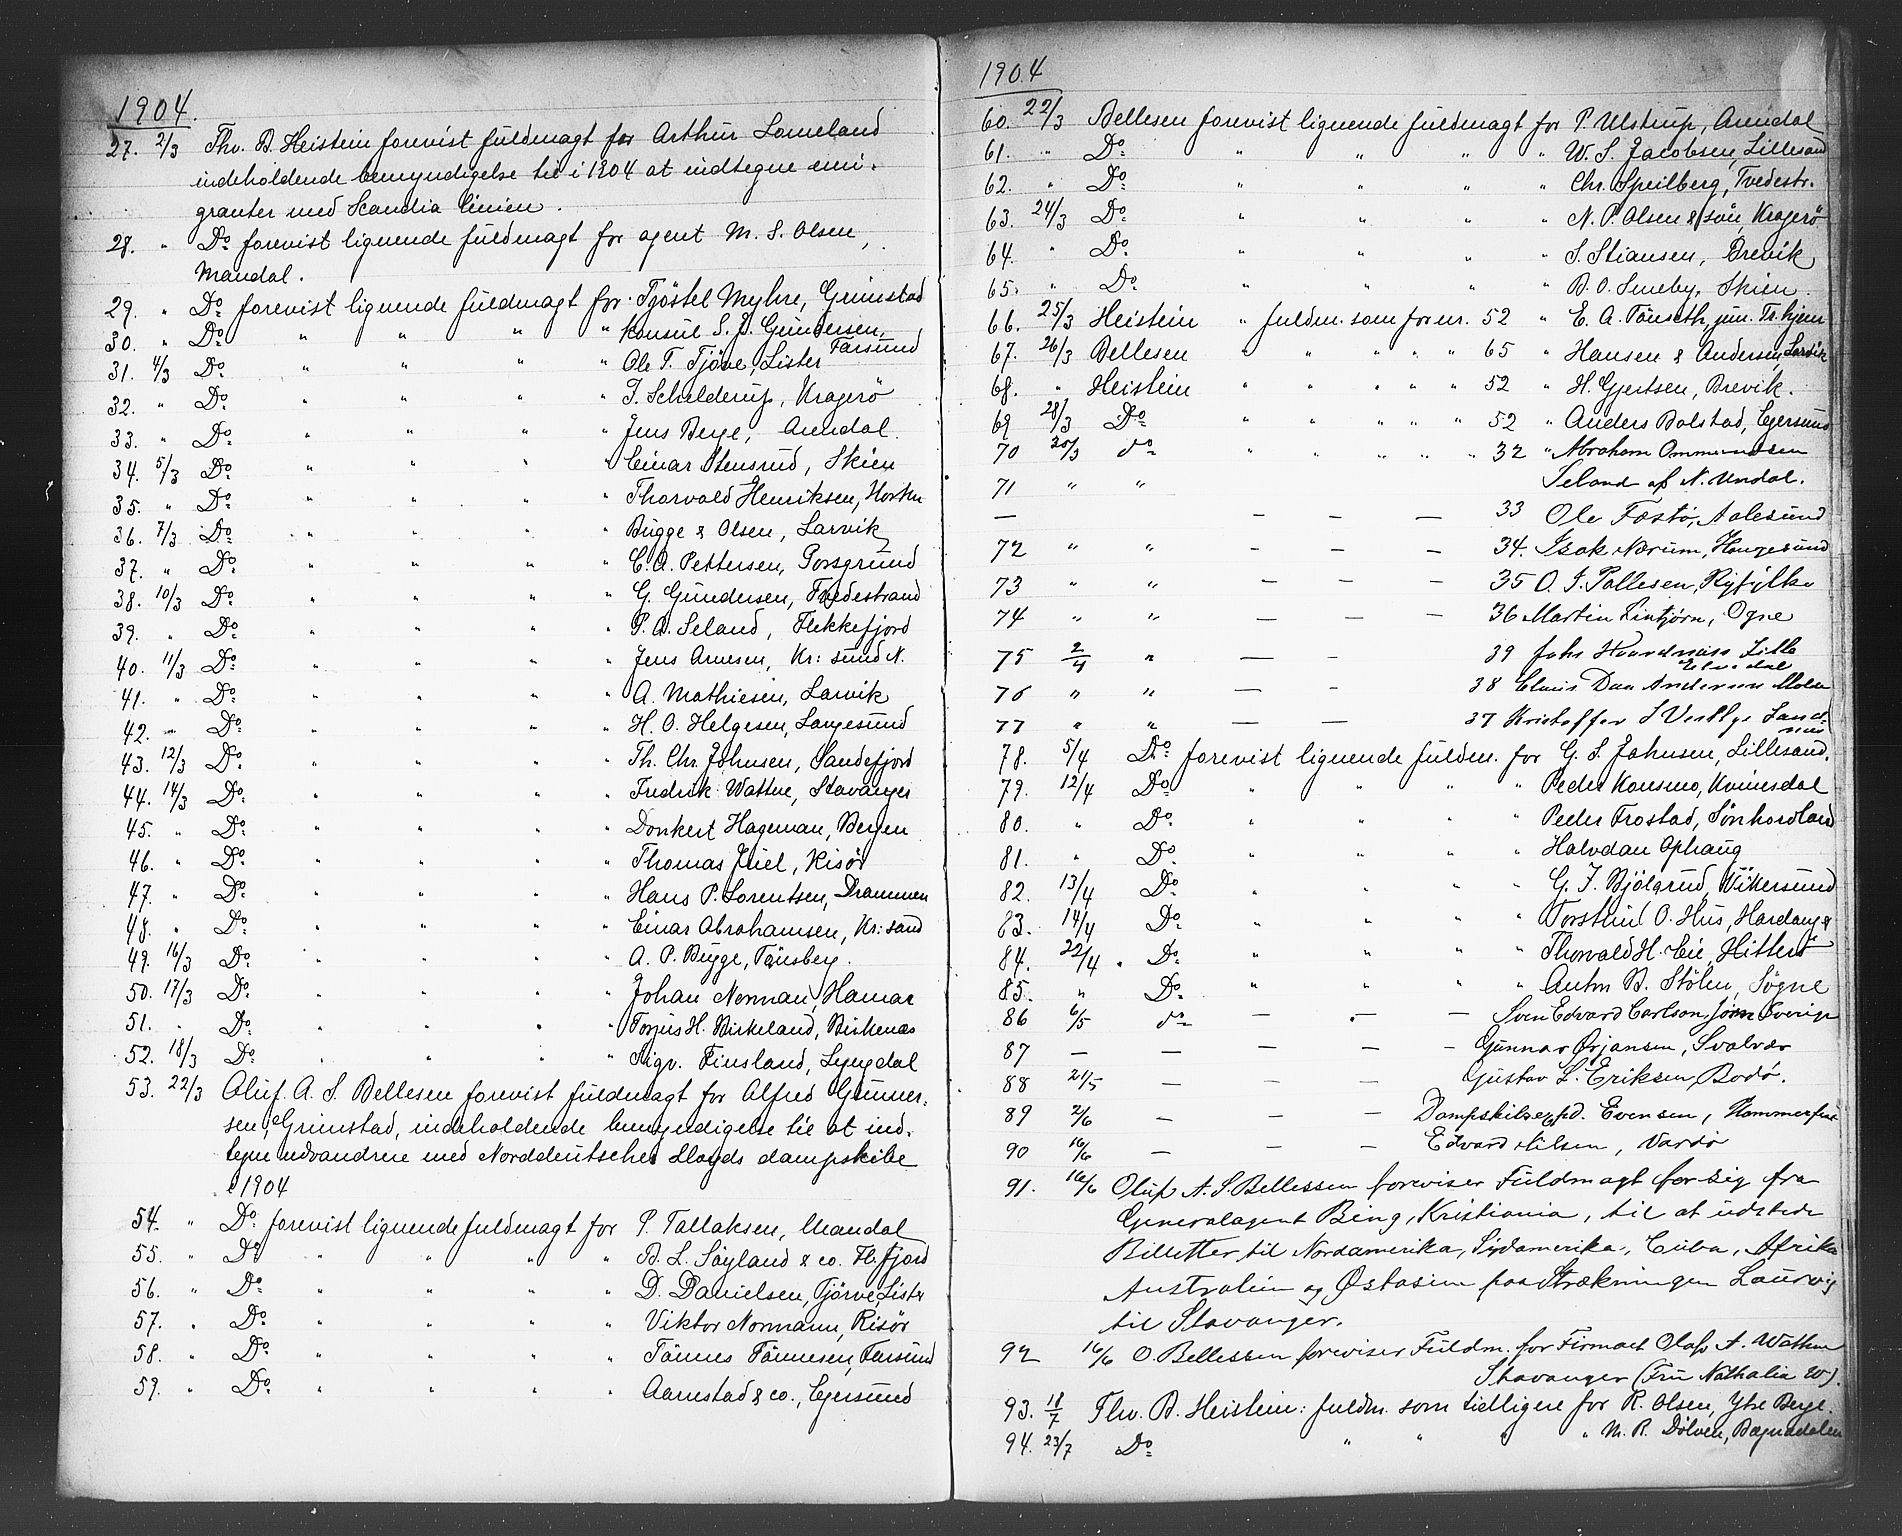 1904.
27. 2/3 Thv. B. Heistein forevist fuldmagt for Arthur Lomeland
indeholdende bemyndigelse til i 1904 at indtegne emi-
granter med Scandia linien.
28. " Do forevist lignende fuldmagt for agent M. S. Olsen,
Mandal.
29. " Do forevist lignende fuldmagt for Tjöstel Myhre, Grimstad
30. " Do " " " " Konsul S. J. Gundersen, Farsund
31. 4/3 Do " " " " Ole T. Tjöve, Lister
32. " Do " " " " J. Schelderup, Kragerø
33. " Do " " " " Jens Berge, Arendal.
34. 5/3 Do " " " " Einar Stensrud, Skien
35. " Do " " " " Thorvald Henriksen, Horten
36. 7/3 Do " " " " Bugge & Olsen, Larvik
37. " Do " " " " C. A. Pettersen, Porsgrund
38. 10/3 Do " " " " G. Gundersen, Tvedestrand
39. " Do " " " " P. A. Seland, Flekkefjord
40. 11/3 Do " " " " Jens Arnesen, Kr: sund N.
41. " Do " " " " A. Mathiesen, Larvik
42. " Do " " " " H. O. Helgesen, Langesund
43. 12/3 Do " " " " Th. Chr. Johnsen, Sandefjord
44. 14/3 Do " " " " Fredrik Wattne, Stavanger
45. " Do " " " " Donkert Hageman, Bergen
46. " Do " " " " Thomas Juel, Risør
47. " Do " " " " Hans P. Lorentsen, Drammen
48. " Do " " " " Einar Abrahamsen, Kr: sand
49. 16/3 Do " " " " A. P. Bugge, Tönsberg.
50. 17/3 Do " " " " Johan Norman, Hamar
51. " Do " " " " Torjus H. Birkeland, Birkenes
52. 18/3 Do " " " " Sigv. Finsland, Lyngdal
53. 22/3 Oluf A. S. Bellesen forevist fuldmagt for Alfred Gunner-
sen, Grimstad, indeholdende bemyndigelse til at ind-
tegne udvandrere med Norddeutscher Lloyds dampskibe
i 1904
54. " Do forevist lignende fuldmagt for P. Tallaksen, Mandal
55. " Do " " " " B. L. Söyland & co. Fl. fjord
56. " Do " " " " D. Danielsen, Tjörve, Lister
57. " Do " " " " Viktor Normann, Risör
58. " Do " " " " Tönnes Tönnesen, Farsund
59. " Do " " " " Aarrestad & co., Egersund
1904
60. 22/3 Bellesen forevist lignende fuldmagt for P. Ulstrup, Arendal
61. " Do " " " " W. S. Jacobsen, Lillesand
62. " Do " " " " Chr. Speilberg, Tvedestr.
63. 24/3 Do " " " " N. P. Olsen & sön, Kragerö
64. " Do " " " " S. Stiansen, Brevik
65. " Do " " " " B. O. Smeby, Skien.
66. 25/3 Heistein " fuldm. som for nr. 52 " E. A. Tönseth, jun. Tr. hjem
67. 26/3 Bellesen " " " " " 65 " Hansen & Andersen, Larvik
68. " Heistein " " " " " 52 " H. Gjertsen, Brevik.
69 28/3 Do " " " " " 52 " Anders Bolstad, Egersund
70 20/3 do " " " " " 32 " Abraham Ommundsen
71 " " Seland af N. Undal.
— — — — 33 Ole Fostø, Aalesund
72 " " — — — 34. Isak Nærum, Haugesund
73 " " — — — 35 O. J. Pallesen, Ryfylke
74 " " — — — 36 Martin Lintjørn, Ogne
75 2/4 " — — 39 Johs Lille Elvedal
76 " " — — 38 Andersen Molde
77 " " — — 37 Kristoffer J
78. 5/4 Do forevist lignende fuldm. for G. S. Johnsen, Lillesand.
79. 12/4 Do " " " " Peder Konsmo, Kvinesdal
80. " Do " " " " Peder Frostad, Sönhordland
81. " Do " " " " Halvdan Ophaug
82. 13/4 Do " " " " G. J. Bjölgrud, Vikersund
83. 14/4 Do " " " " Torstein O. Hus, Hardanger
84. 22/4 " Do " " " " Thorvald H. Eie, Hitterö
85. " Do " " " " Anton B. Stölen, Søgne
86 6/5 do — " — Sven Edvard Carlson, Sverige
87 — — — — — Gunnar Ørjansen, Svolvær
88 21/5 — — — Gustav L. Eriksen, Bodø.
89 2/6 — — — Dampskibsexpd. Evensen, Hammerfest
90 16/6 — — — Edvard Nilsen, Vardø
91. 16/6 Oluf A. S. Bellessen foreviser Fuldmagt for sig fra
Generalagent Bing, Kristiania, til at udstede
Billetter til Nordamerika, Sydamerika, Cuba, Afrika
Australien og Østasien paa Strækningen Laurvig
til Stavanger.
92 16/6 O. Bellessen foreviser Fuldm. for Firmaet Olaf A. Wathne
Stavanger (Fru Nathalia W).
93. 18/7 Thv. B. Heistein: fuldm. som tidligere for R. Olsen, Ytre Berge.
94. 23/7 Do " " " " M. R. Dölven, Bægnadalen